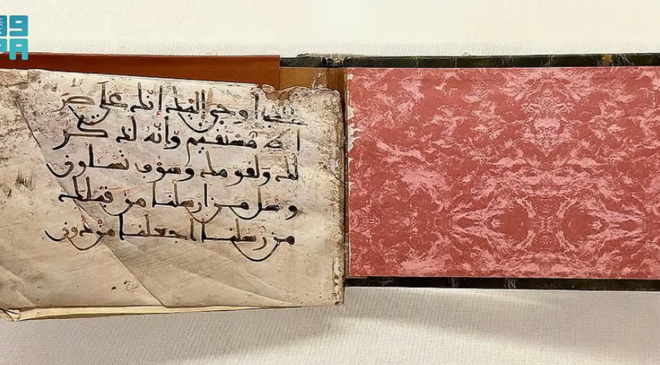 بالذي أوحي إليك إنك على صر
اط مستقيم وإنه لذكر
لك ولقومك وسوف تسئلون
وسل من أرسلنا من قبلك
من رسلنا أجعلنا من دون